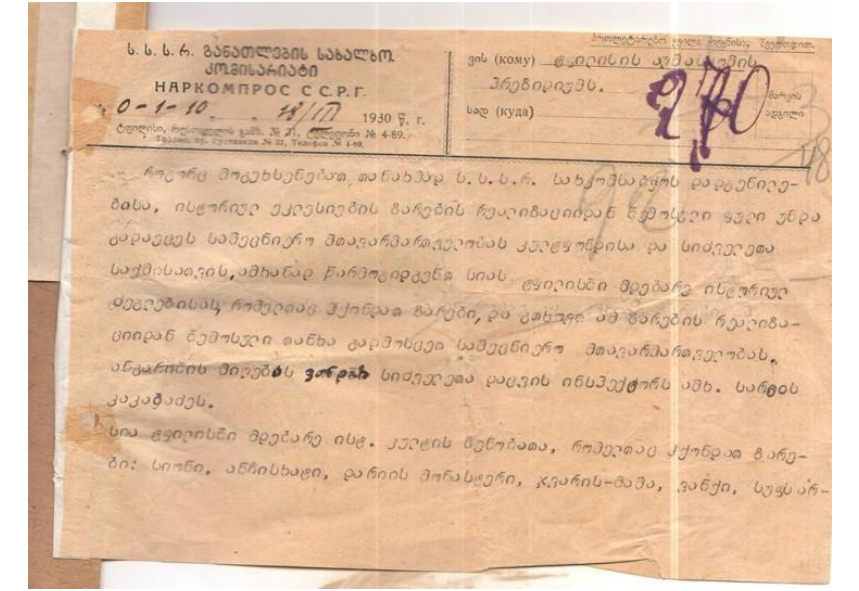 პროლეტარებო ყველა ქვეყნისა, შეერთდით.
ს. ს. ს. რ. განათლების სახალხო
კომისარიატი
НАРКОМПРОС С С.Р.Г.
№ 0-1-10 18/III 1930 წ. г.
ტფილისი, რუსთაველის გამზ. № 31, ტელეფონი № 4-89.
Тифлис, пр. Руставели № 31, Телефон № 4-89.
ვის (кому) ტფილისის აღმასკომის
პრეზიდიუმს.
სად (куда)
მარკის
ადგილი
270
როგორც მოგეხსენებათ, თანახმად ს.ს.ს.რ. სახკომსაბჭოს დადგენილე-
ბისა, ისტორიულ ეკლესიების ზარების რეალიზაციიდან შემოსული ფული უნდა
გადაეცეს სამეცნიერო მთავარმართველობას კულტფონდისა და სიძველეთა
საქმისათვის, ამხანად წარმოგიდგენთ სიას ტფილისში მდებარე ისტორიულ
ძეგლებისას, რომელთაც ჰქონდათ ზარები, და გთხოვთ ამ ზარების რეალიზა-
ციიდან შემოსული თანხა გადმოსცეთ სამეცნიერო მთავარმართველობას.
ანგარიშის მიღებას სიძველეთა დაცვის ინსპექტორს ამხ. სარგის
კაკაბაძეს.
სია ტფილისში მდებარე ისტ. კულტის შენობათა, რომელთაც ჰქონდათ ზარე-
ბი: სიონი, ანჩისხატი, დარიის მონასტერი, ჯვარის-მამა, ვანქი, სუფსარ-